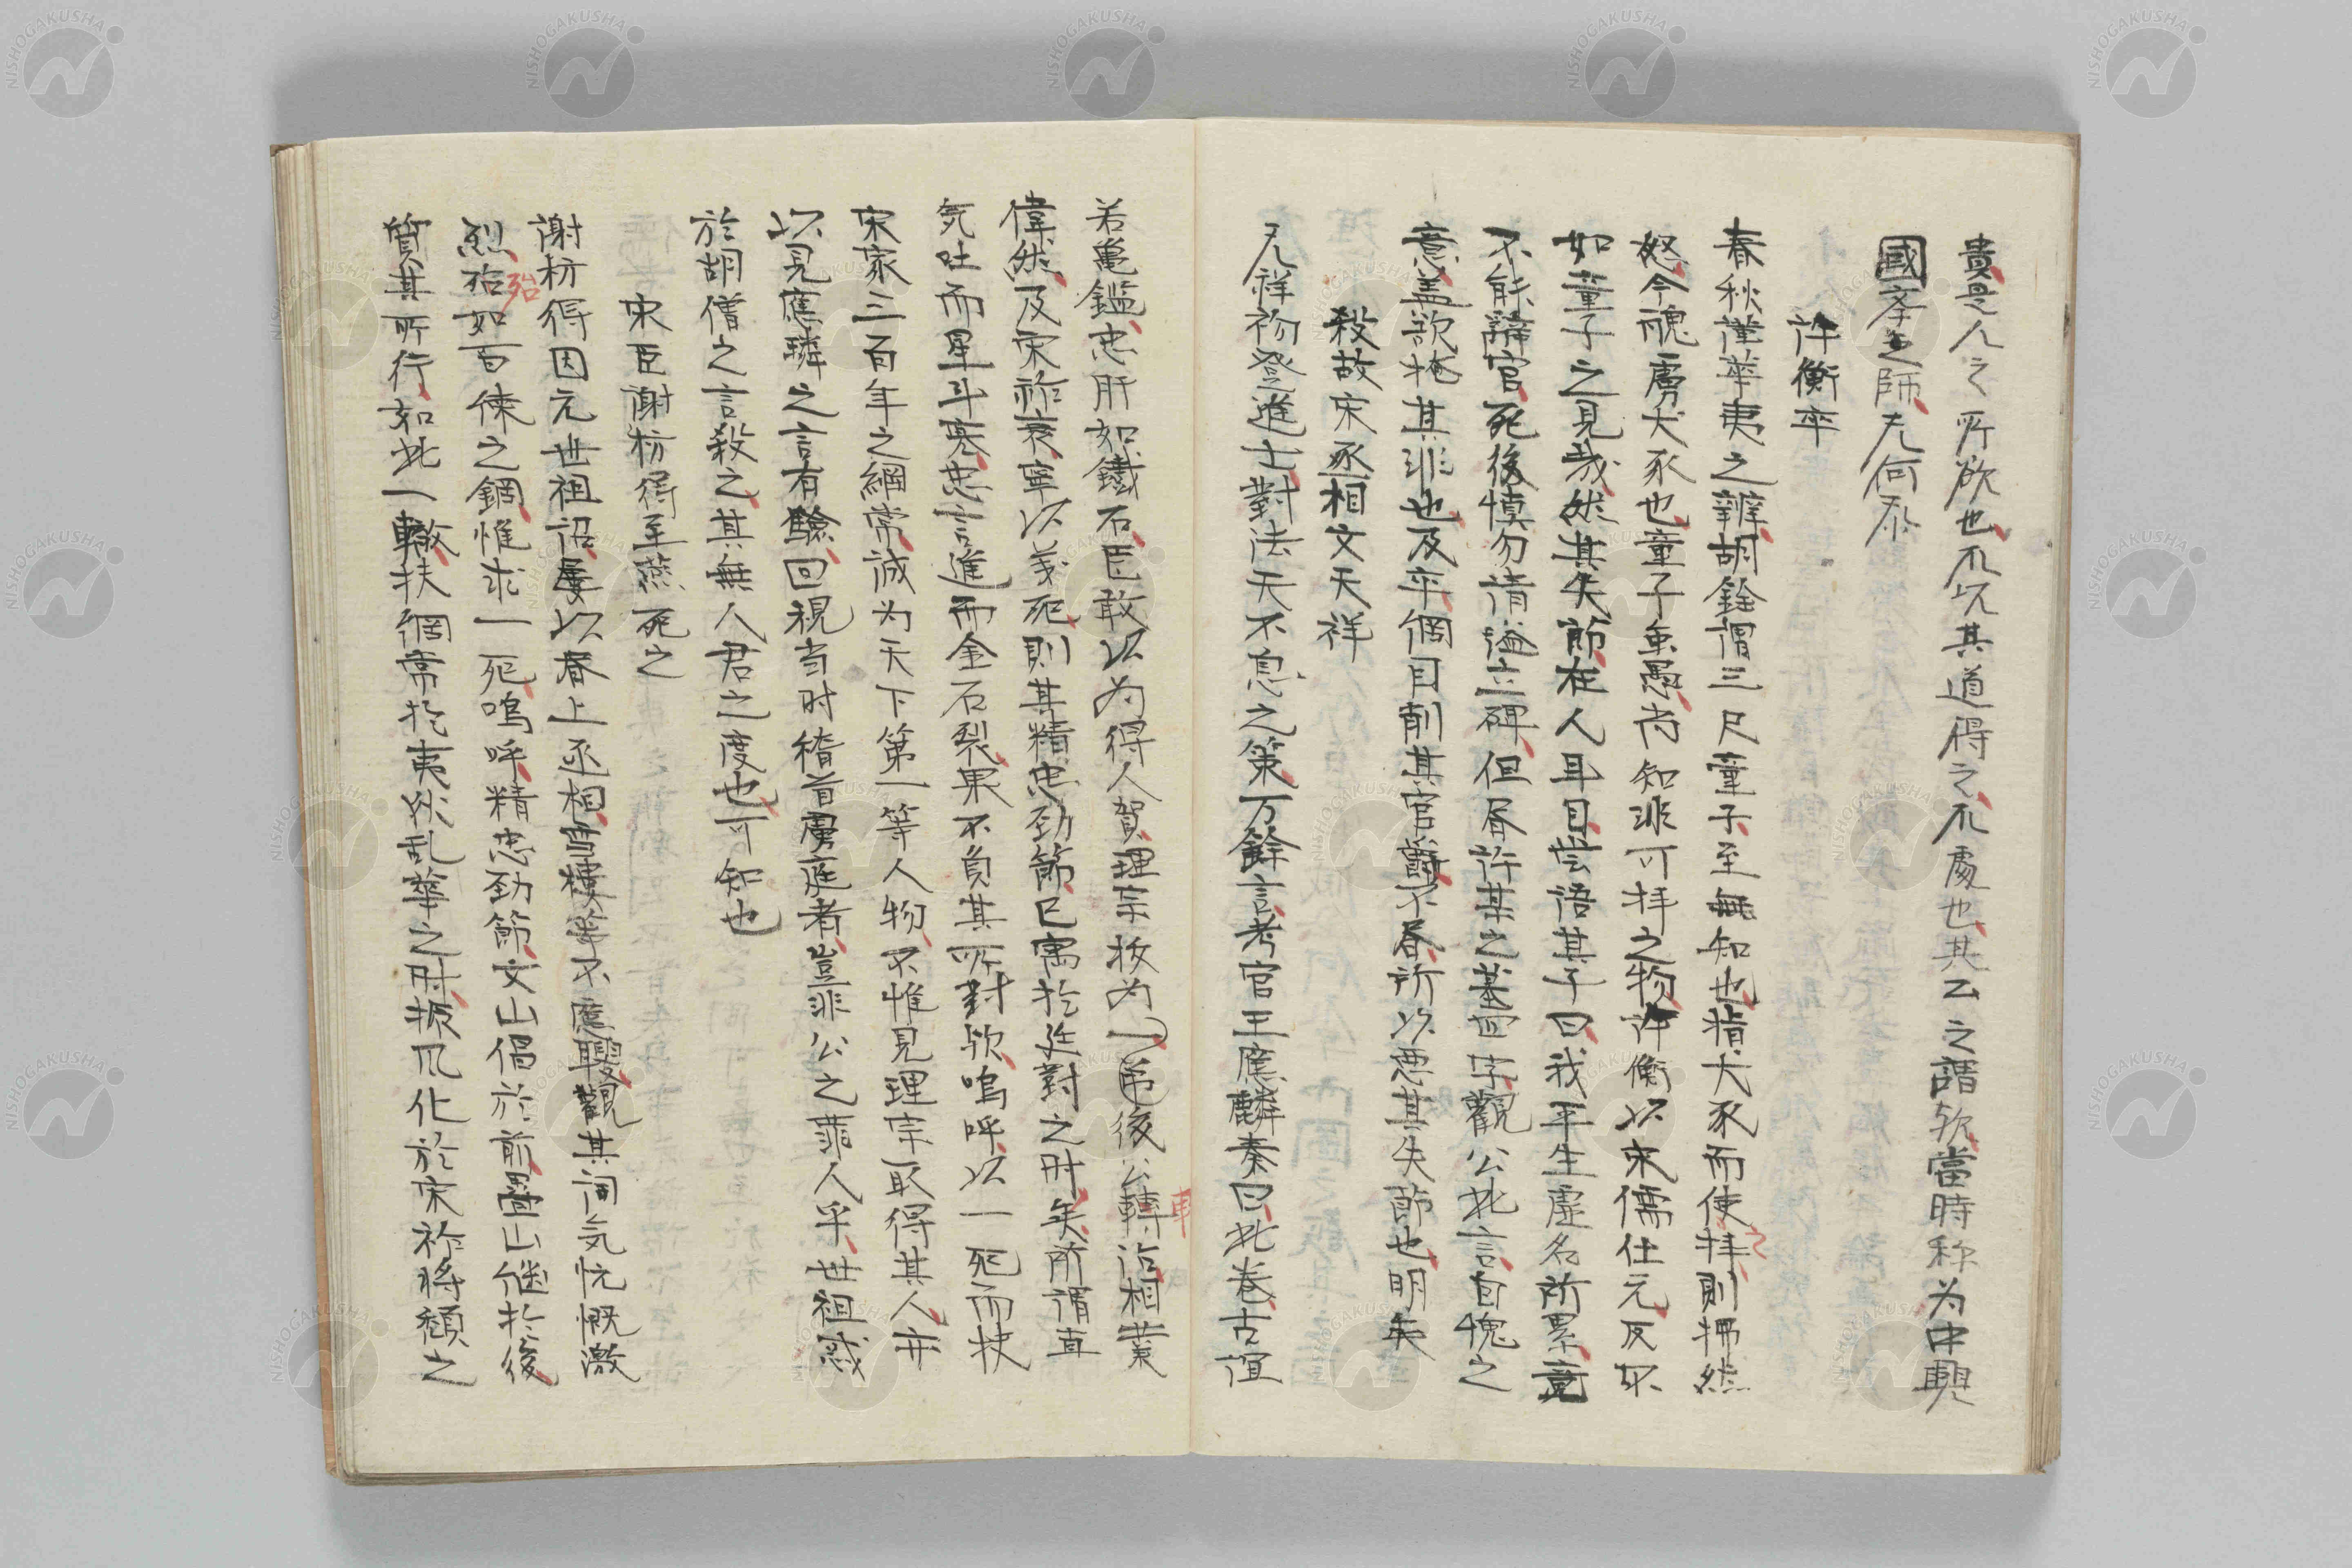 貴是人之所欲也不以其道得之不處也其云之謂欤當時称为中興
國孝之師尤何忝
許衡卒
春秋謹華夷之辨胡銓謂三尺童子至無知也指犬豕而使拝則拂然
怒今醜虜犬豕也童子虽愚尚知非可拝之物許衡以宋儒仕元反不
如童子之見哉然其失節在人耳目尝语其子曰我平生虚名所累竟
不能辭官死後慎勿请谥立碑但書許某之墓四字觀公此言自愧之
意盖欲掩其非也及卒綱目削其官爵不書所以悪其失節也明矣
殺故宋丞相文天祥
天祥初登進士對法天不息之策万餘言考官王應麟奏曰此卷古誼
若亀鑑忠肝如鐵石臣敢以为得人賀理宗妆为一甲後公轉治相業
偉然及宋祚衰寧以義死則其精忠劲節已寓於廷對之时矣所謂直
気吐而星斗寒忠言進而金石裂果不負其所對欤嗚呼以一死而扶
宋家三百年之綱常誠为天下第一等人物不惟見理宗取得其人亦
以見應璘之言有驗回視当时稽首虜庭者豈非公之罪人乎世祖惑
於胡僧之言殺之其無人君之度也可知也
宋臣謝枋得至燕死之
謝枋得因元世祖诏屡以春上丞相雪楼等不應聘觀其词気忼慨激
烈殆如百錬之鋼惟求一死嗚呼精忠劲節文山倡於前疊山継於後
質其所行如此一轍扶綱常於夷狄乱華之时振风化於宋祚将頽之